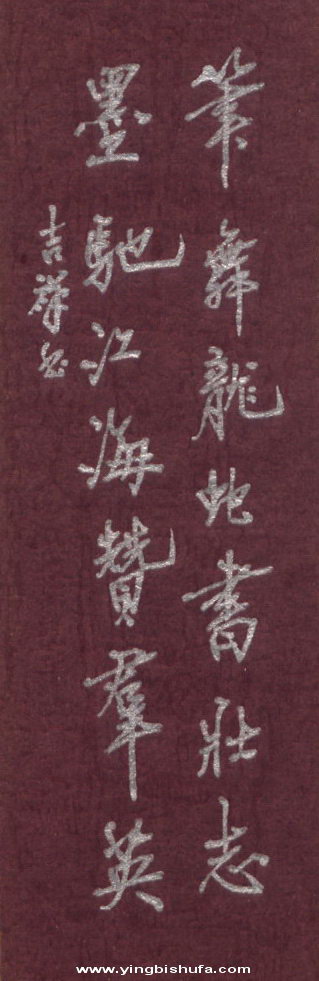 筆舞龍蛇書壯志
墨馳江海贊羣英
吉祥書
www.yingbishufa.com